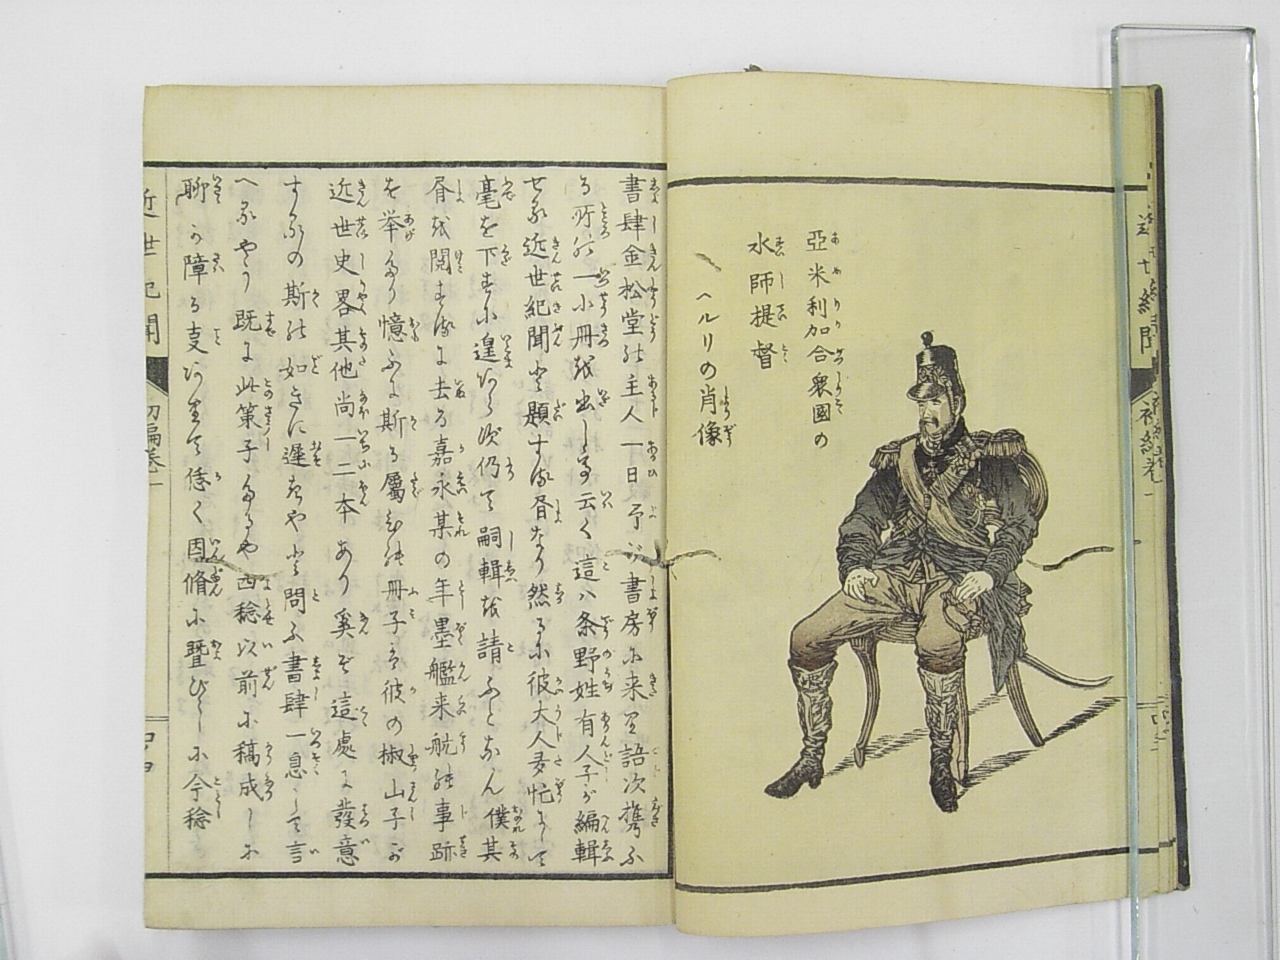 亞米利加合衆國の
水師提督
ヘルリの肖像
書肆金松堂の主人一日予が書房に来り語次携ふ
る所の一小冊を出し云く這ハ条野姓有人子が編輯
せる近世紀聞と題する書なり然るに彼大人多忙にして
毫を下すに遑あらず仍て嗣輯を請ふとなん僕其
書を閲するに去る嘉永某の年墨艦来航の事跡
を挙たり憶ふに斯る屬ひの冊子は彼の椒山子が
近世史畧其他尚一二本あり奚ぞ這處に發意
するの斯の如きに遲きやと問ふ書肆一息して言
へるやう既に此策子たるや酉稔以前に稿成しに
聊か障る支ありて恁く因循に曁びしに今稔
近世紀聞
初編巻一
四